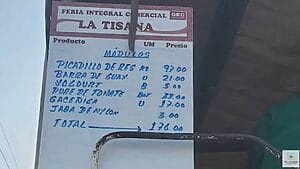 FERIA INTEGRAL COMERCIAL
LA TISANA
Producto UM Precio
MÓDULOS
PICADILLO DE RES KG 97.00
BARRA DE GUAY. U 21.00
YOGOURT B 5.00
PURE DE TOMATE
GACEÑIGA U 17.00
JABA DE NYLON 3.00
TOTAL 176.00